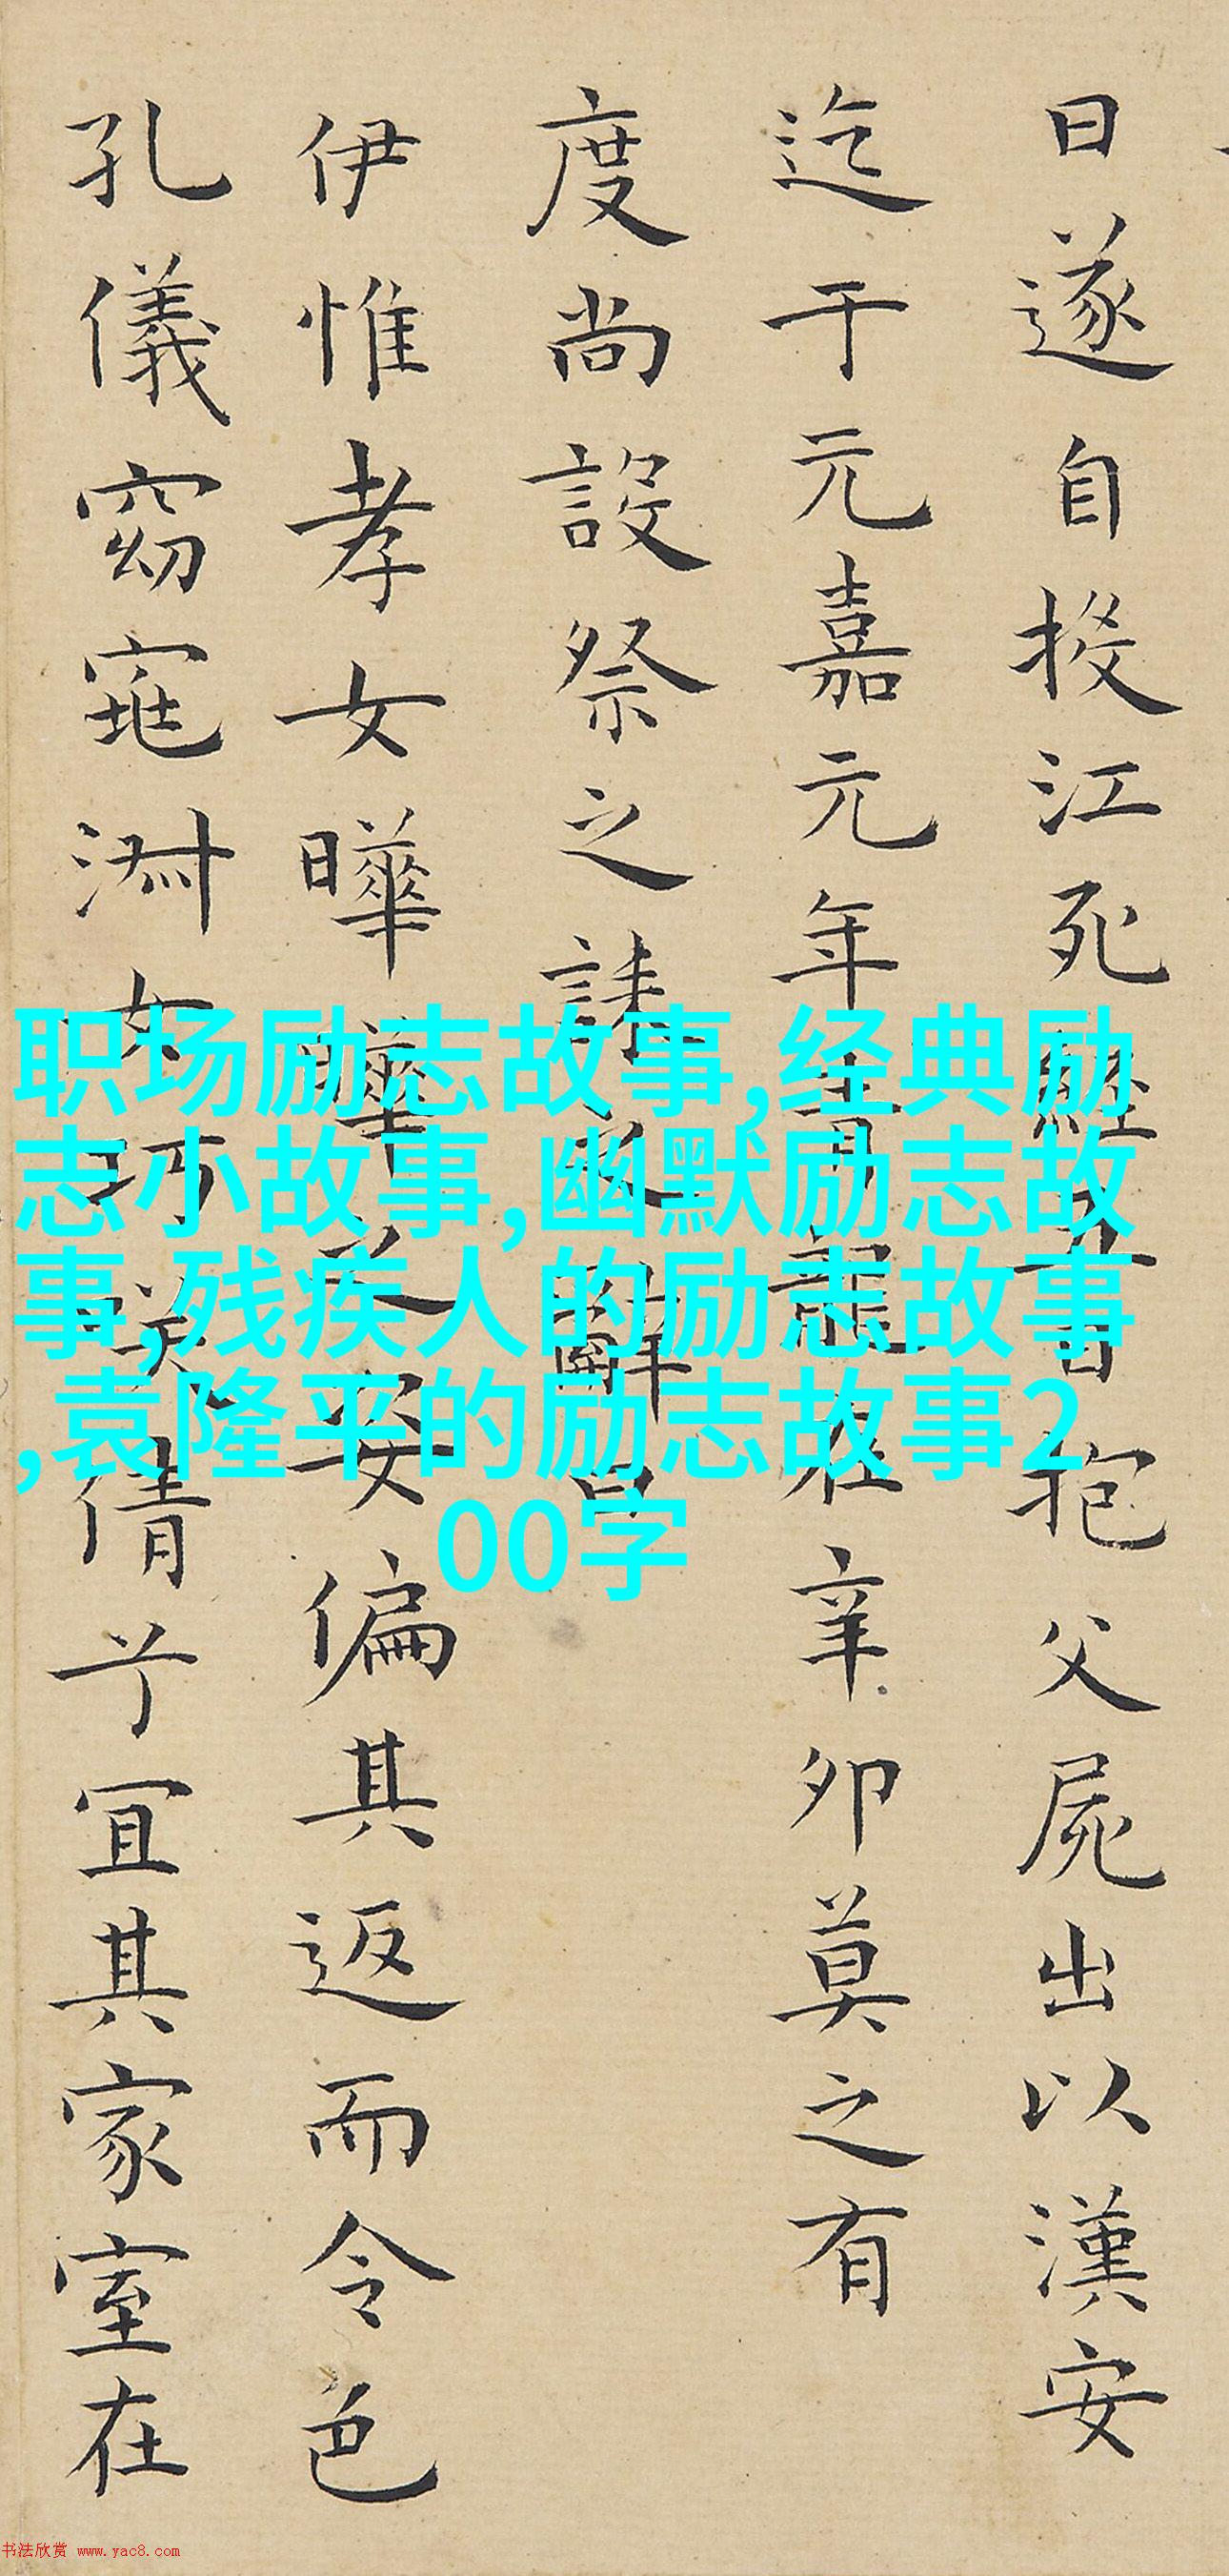 日遂自投江死經五日抱父屍出以漢安
迄于元嘉元年青龍在辛卯莫之有
度尚設祭之誄之辭曰
伊惟孝女曄曄之姿偏其返而令色
孔儀窈窕淑女巧笑倩兮宜其家室在
职场励志故事,经典励
志小故事,幽默励志故
事,残疾人的励志故事
,袁隆平的励志故事2
00字
书法欣赏 www.yac8.com